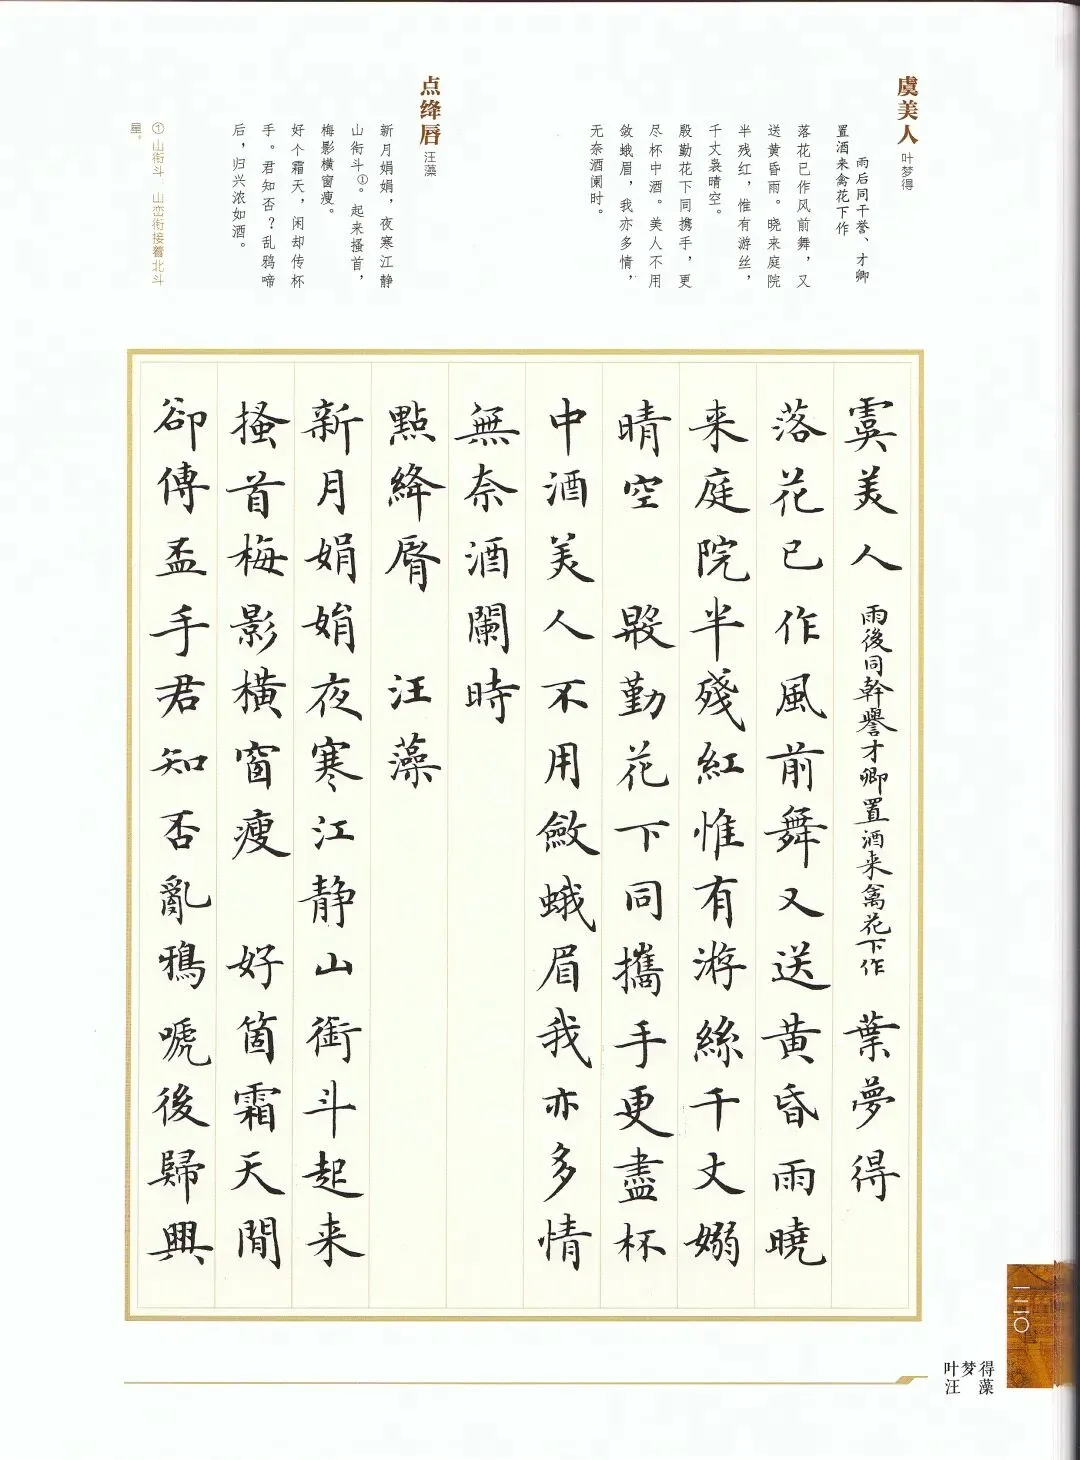 虞美人 叶梦得
雨后同干誉、才卿
置酒来禽花下作
落花已作风前舞，又
送黄昏雨。晓来庭院
半残红，惟有游丝，
千丈袅晴空。
殷勤花下同携手，更
尽杯中酒。美人不用
敛蛾眉，我亦多情，
无奈酒阑时。
点绛唇 汪藻
新月娟娟，夜寒江静
山衔斗①。起来搔首，
梅影横窗瘦。
好个霜天，闲却传杯
手。君知否？乱鸦啼
后，归兴浓如酒。
① 山衔斗 山峦衔接着北斗
星。
虞美人 雨後同幹譽才卿置酒来禽花下作 葉夢得
落花已作風前舞又送黄昏雨曉
来庭院半殘紅惟有游絲千丈嫋
晴空 殷勤花下同攜手更盡杯
中酒美人不用斂蛾眉我亦多情
無奈酒闌時
點絳脣 汪藻
新月娟娟夜寒江静山銜斗起来
搔首梅影橫窗瘦 好箇霜天閒
卻傳盃手君知否亂鴉嗁後歸興
一二〇
叶梦得
汪藻